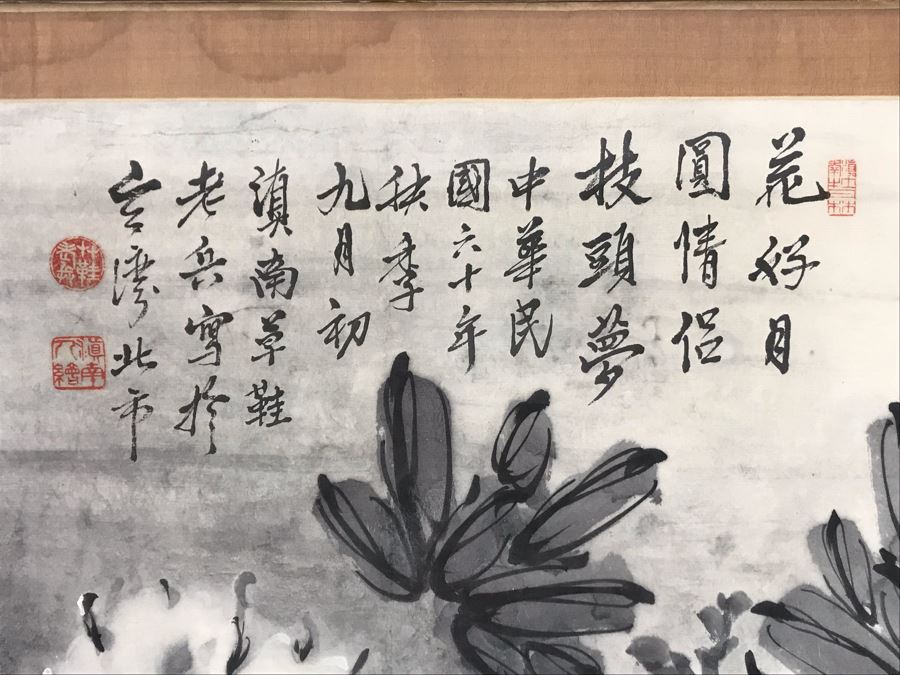 花好月
圓情侶
枝頭夢
中華民
國六十年
秋季
九月初
滇南草鞋
老兵寫於
台灣北市
草鞋
老兵
滇南
人繪